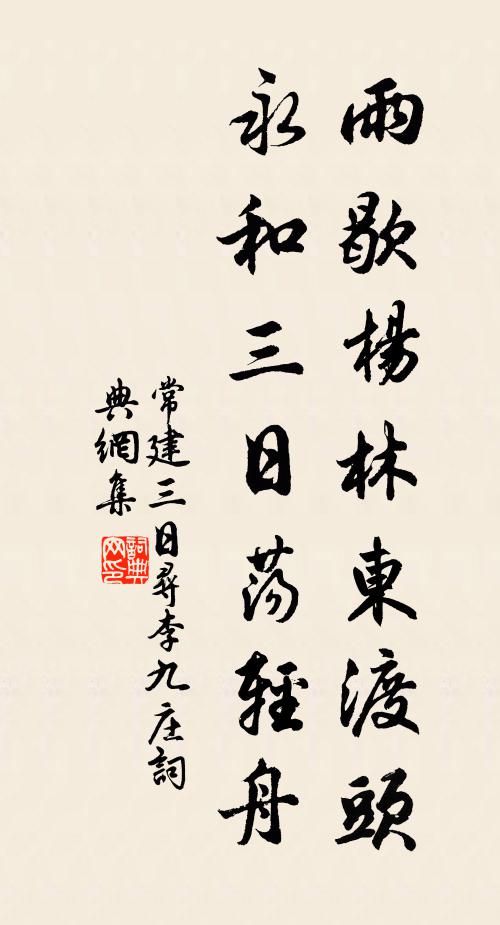 雨歇楊林東渡頭
永和三日荡輕舟
常建三日尋李九庄詞
典網集
詞典
网印